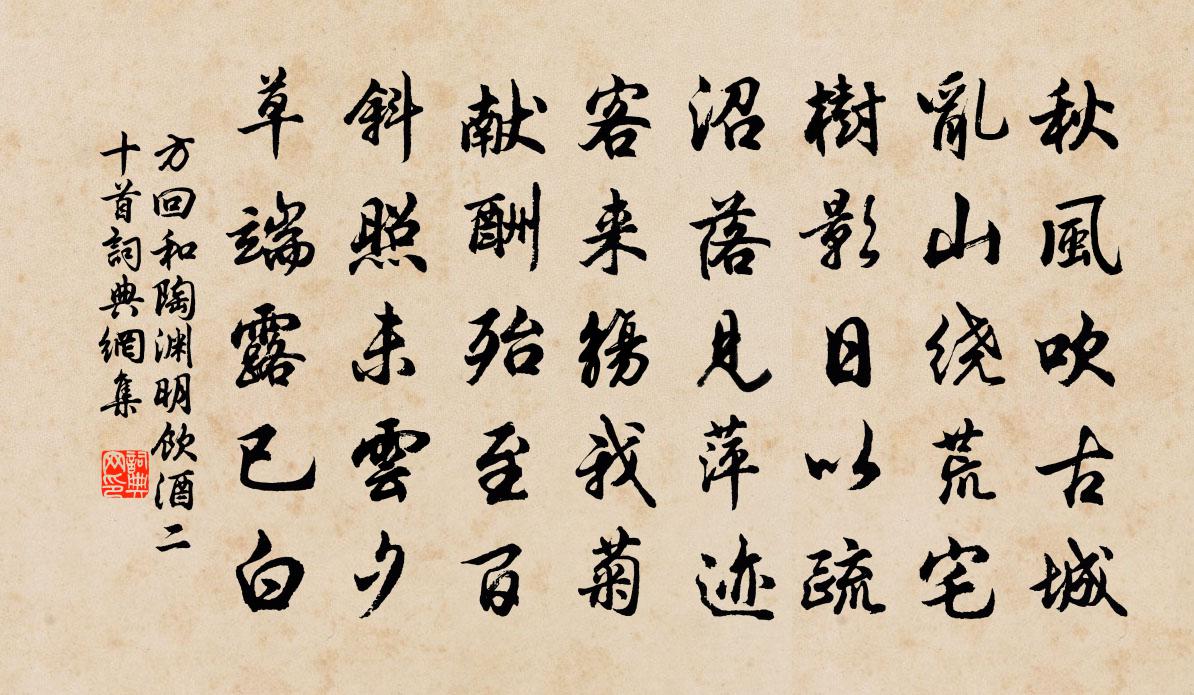 秋風吹古城
亂山绕荒宅
樹影日以疏
沼落見萍迹
客来觴我菊
献酬殆至百
斜照未雲夕
草端露已白
方回和陶渊明飲酒二
十首詞典網集
詞典网印